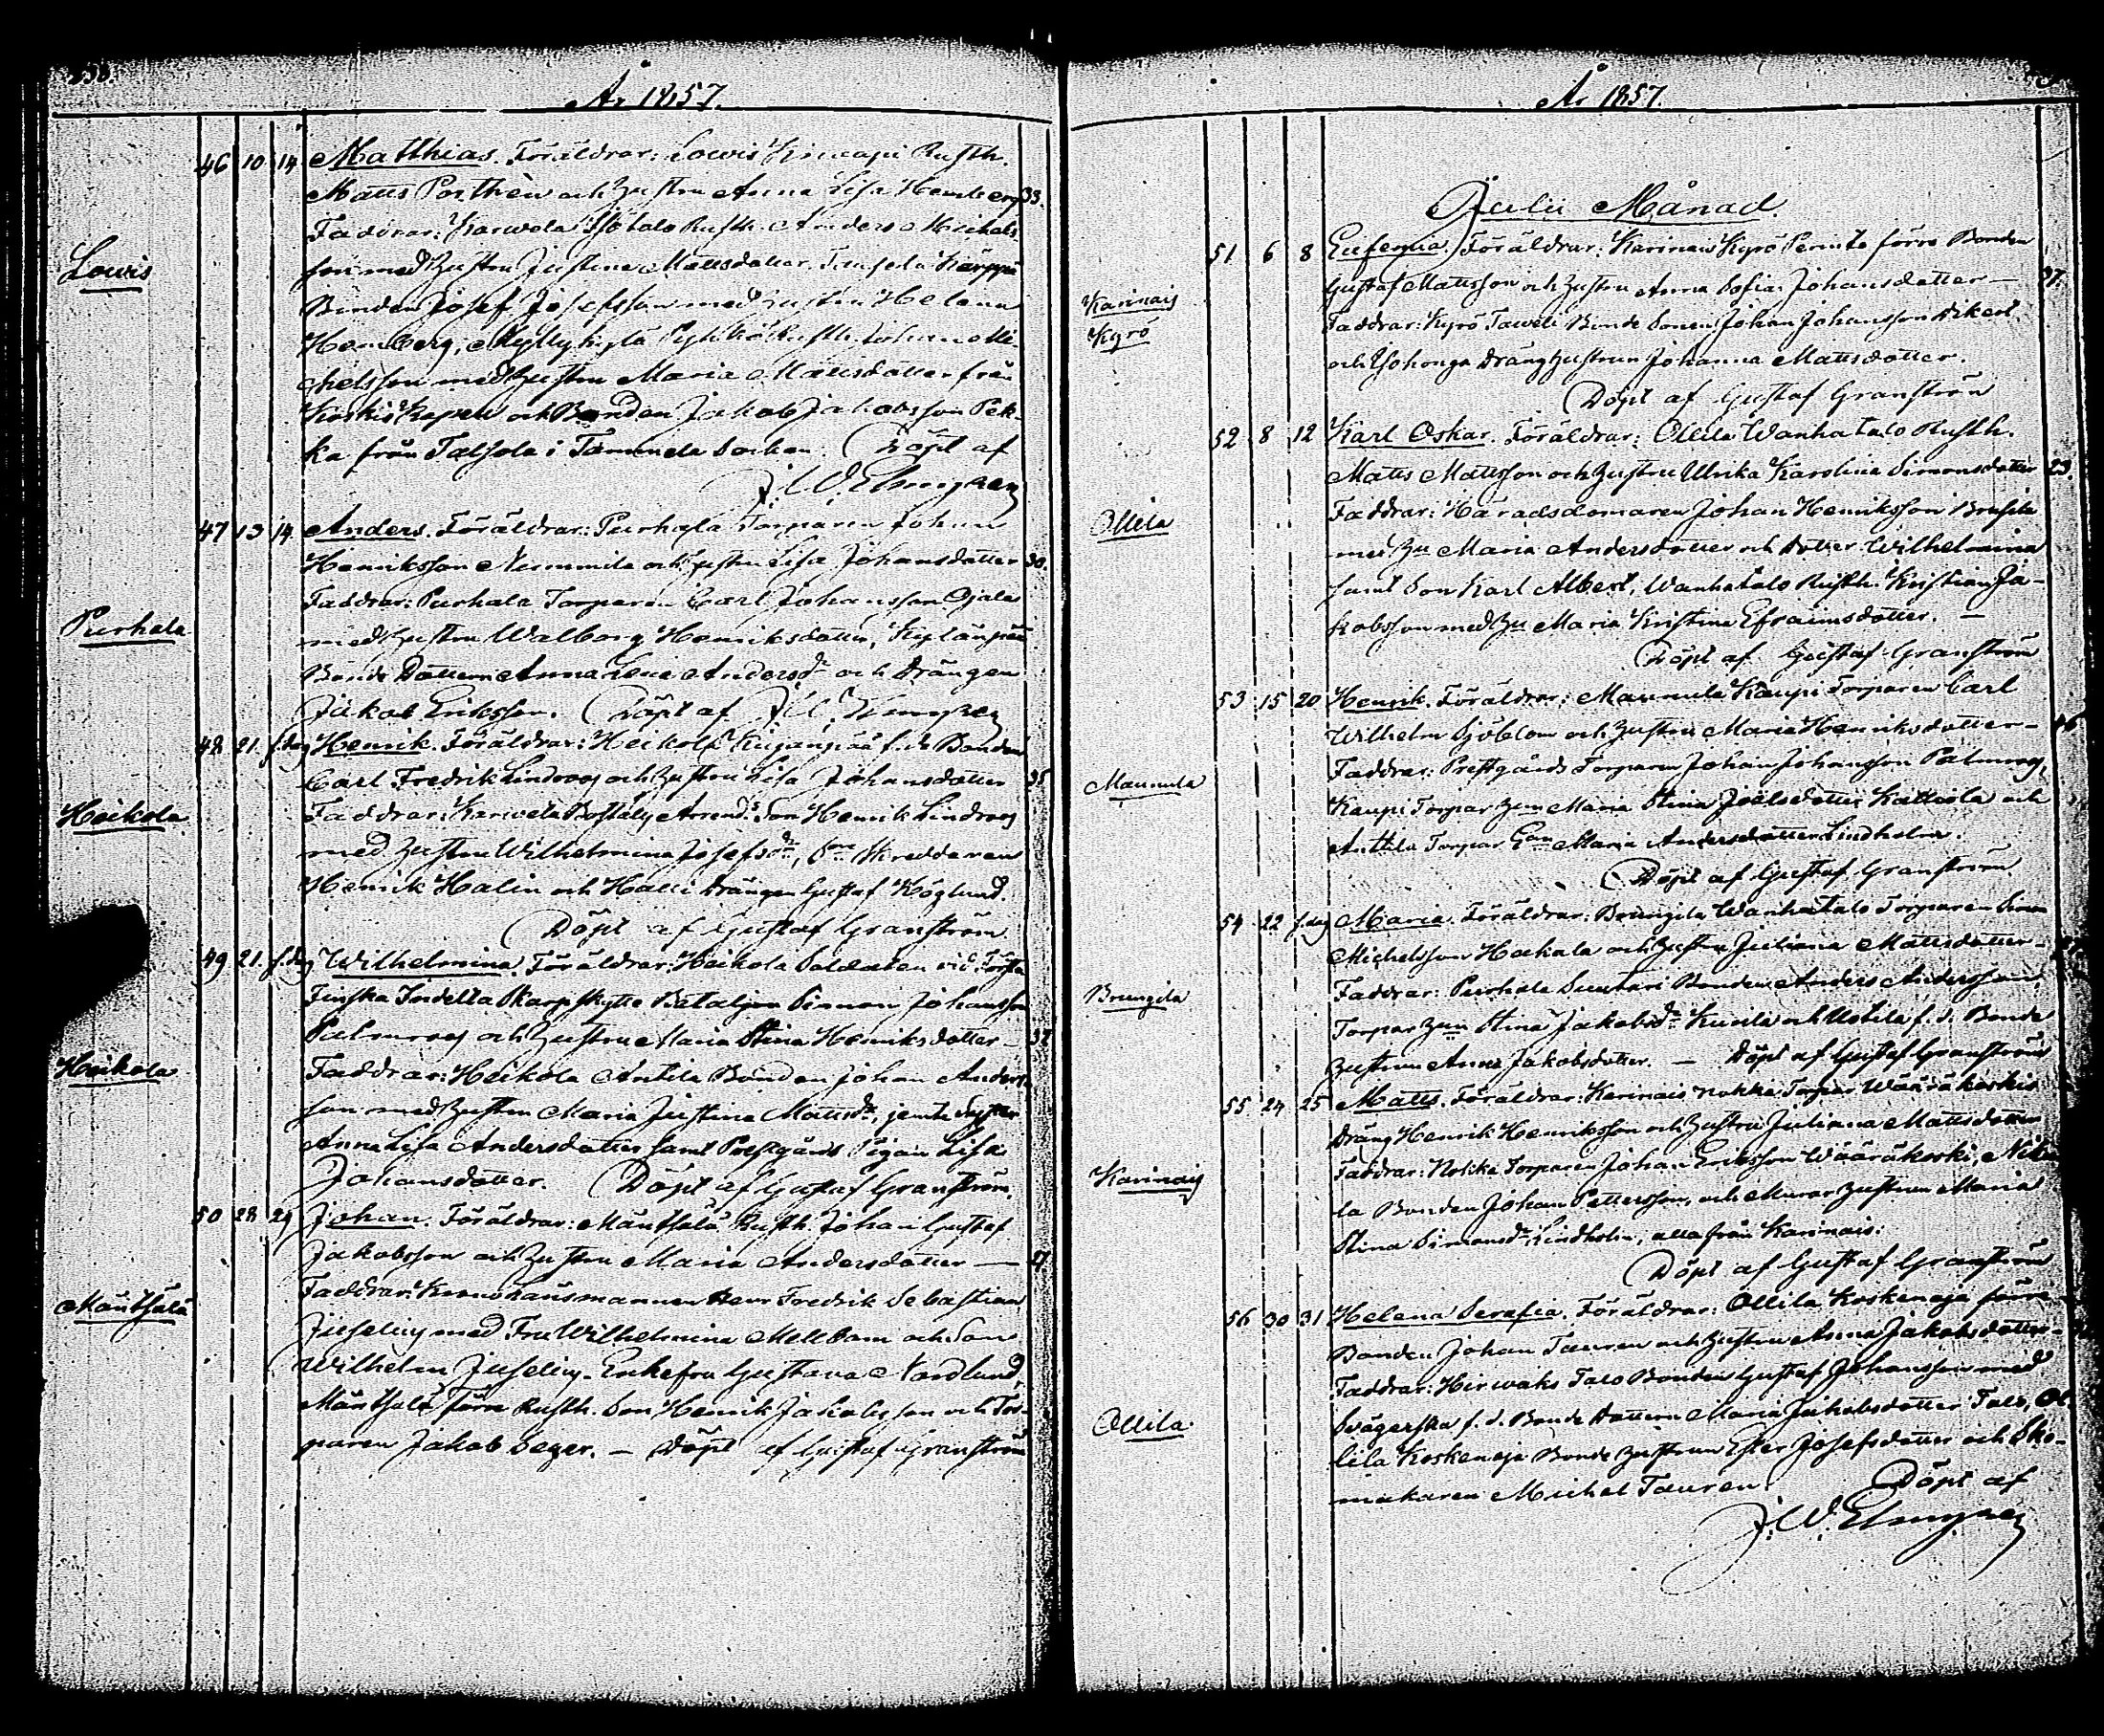 År 1857.
Lowis
46 10 14 Matthias. Föräldrar: Lowis Knuapi Rusth.
Matts Porthen och hustru Anna Lisa Hemberg 33.
Faddrar: Karwela Isotalo Rusth. Anders Michels-
son med hustru Justina Mattsdotter. Tausela Kärppä
Bonden Josef Josefsson med hustru Helena
Hemberg, Myllykylä Rusth. Johan Mi-
chelsson med hustru Maria Mattsdotter från
Koskis Kapell och Bonden Jakob Jakobsson Pek-
ka från Talsola i Tammela Socken. Döpt af
J. W. Elmgren
Purhala
47 13 14 Anders. Föräldrar: Purhala Torparen Johan
Henriksson Niemmila och hustru Lisa Johansdotter 30.
Faddrar: Purhala Torparen Carl Johansson Ojala
med hustru Walborg Henriksdotter, Kylänpää
Bonde Dottern Anna Lena Andersdr och Drängen
Jakob Eriksson. Döpt af J. W. Elmgren
Heikola
48 21 s. dag Henrik. Föräldrar: Heikola Kujanpää f. de Bonden
Carl Fredrik Lindroos och hustru Lisa Johansdotter 35
Faddrar: Karwela Boställs Arrend. Son Henrik Lindroos
med hustru Wilhelmina Josefsdr, Skreddaren
Henrik Halin och Halli Drängen Gustaf Höglund.
Döpt af Gustaf Granström
Heikola
49 21. s. dag Wilhelmina. Föräldrar: Heikola Soldaten vid Första
Finska Indelta Skarpskytte Bataljon Simon Johansson
Palmroos och hustru Maria Stina Henriksdotter — 32
Faddrar: Heikola Antila Bonden Johan Anders-
son med hustru Maria Justina Mattsdr, jemte Syster
Anna Lisa Andersdotter samt Prestgårds Pigan Lisa
Johansdotter. Döpt af Gustaf Granström.
Mäntsälä
50 28 29 Johan. Föräldrar: Mäntsälä Rusth. Johan Gustaf
Jakobsson och hustru Maria Andersdotter —
Faddrar: Kronolänsmannen Herr Fredrik Sebastian
Juselius med Fru Wilhelmina Mellbom och Son
Wilhelm Juselius. Enkefru Gustava Nordlund,
Mäntsälä förre Rusth. Son Henrik Jakobsson och Tor-
paren Jakob Seger. — Döpt af Gustaf Granström
År 1857.
Julii Månad.
Karinais
Kyrö
51 6 8 Eufemia. Föräldrar: Karinais Kyrö Pernite förre Bonden
Gustaf Mattsson och hustru Anna Sofia Johansdotter — 37.
Faddrar: Kyrö Taweli Bonde Sonen Johan Johansson Dikert
och Isohonga Dräng hustrun Johanna Mattsdotter.
Döpt af Gustaf Granström
Ollila
52 8 12 Karl Oskar. Föräldrar: Ollila Wanhatalo Rusth.
Matts Mattsson och hustru Ulrika Karolina Simonsdotter 23.
Faddrar: Häradsdomaren Johan Henriksson Brusila
med hu Maria Andersdotter och Dotter Wilhelmina
samt Son Karl Albert, Wanhatalo Rusth. Kristian Ja-
kobsson med hu Maria Kristina Efraimsdotter. —
Döpt af Gustaf Granström
Maunula
53 15 20 Henrik. Föräldrar: Maunula Kaupi Torparen Carl
Wilhelm Sjöblom och hustru Maria Henriksdotter —
Faddrar: Prestgårds Torparen Johan Johansson Palmroos,
Kaupi Torpar hun Maria Stina Joelsdotter Kattiola och
Anttila Torpar Maria Andersdotter Lindholm.
Döpt af Gustaf Granström
Brungila
54 22 s. dag Maria. Föräldrar: Brungila Wanhatalo Torparen Simon
Michelsson Hakala och hustru Juliana Mattsdotter —
Faddrar: Purhala Suutari Bonden Anders Andersson,
Torpar hun Stina Jakobsdr Kuusila och Uotila f. d. Bonde
hustrun Anna Jakobsdotter. — Döpt af Gustaf Granström
Karinais
55 24 25 Matts. Föräldrar: Karinais Nokka Torpar Wääräkoskis
Dräng Henrik Henriksson och hustru Juliana Mattsdotter
Faddrar: Nokka Torparen Johan Eriksson Wääräkoski, Niku-
la Bonden Johan Pettersson, och Murar hustrun Maria
Stina Simonsdr Lindholm, alla från Karinais.
Döpt af Gustaf Granström
Ollila
56 30 31 Helena Serafia. Föräldrar: Ollila Koskenoja förre
Bonden Johan Tauren och hustru Anna Jakobsdotter —
Faddrar: Hirwaks Talo Bonden Gustaf Johansson med
Svägerska f. d. Bonde Dottern Maria Jakobsdotter Talo, Ol-
lila Koskenoja Bonde hustrun Ester Josefsdotter och Sko-
makaren Michel Tauren. Döpt af
J. W. Elmgren